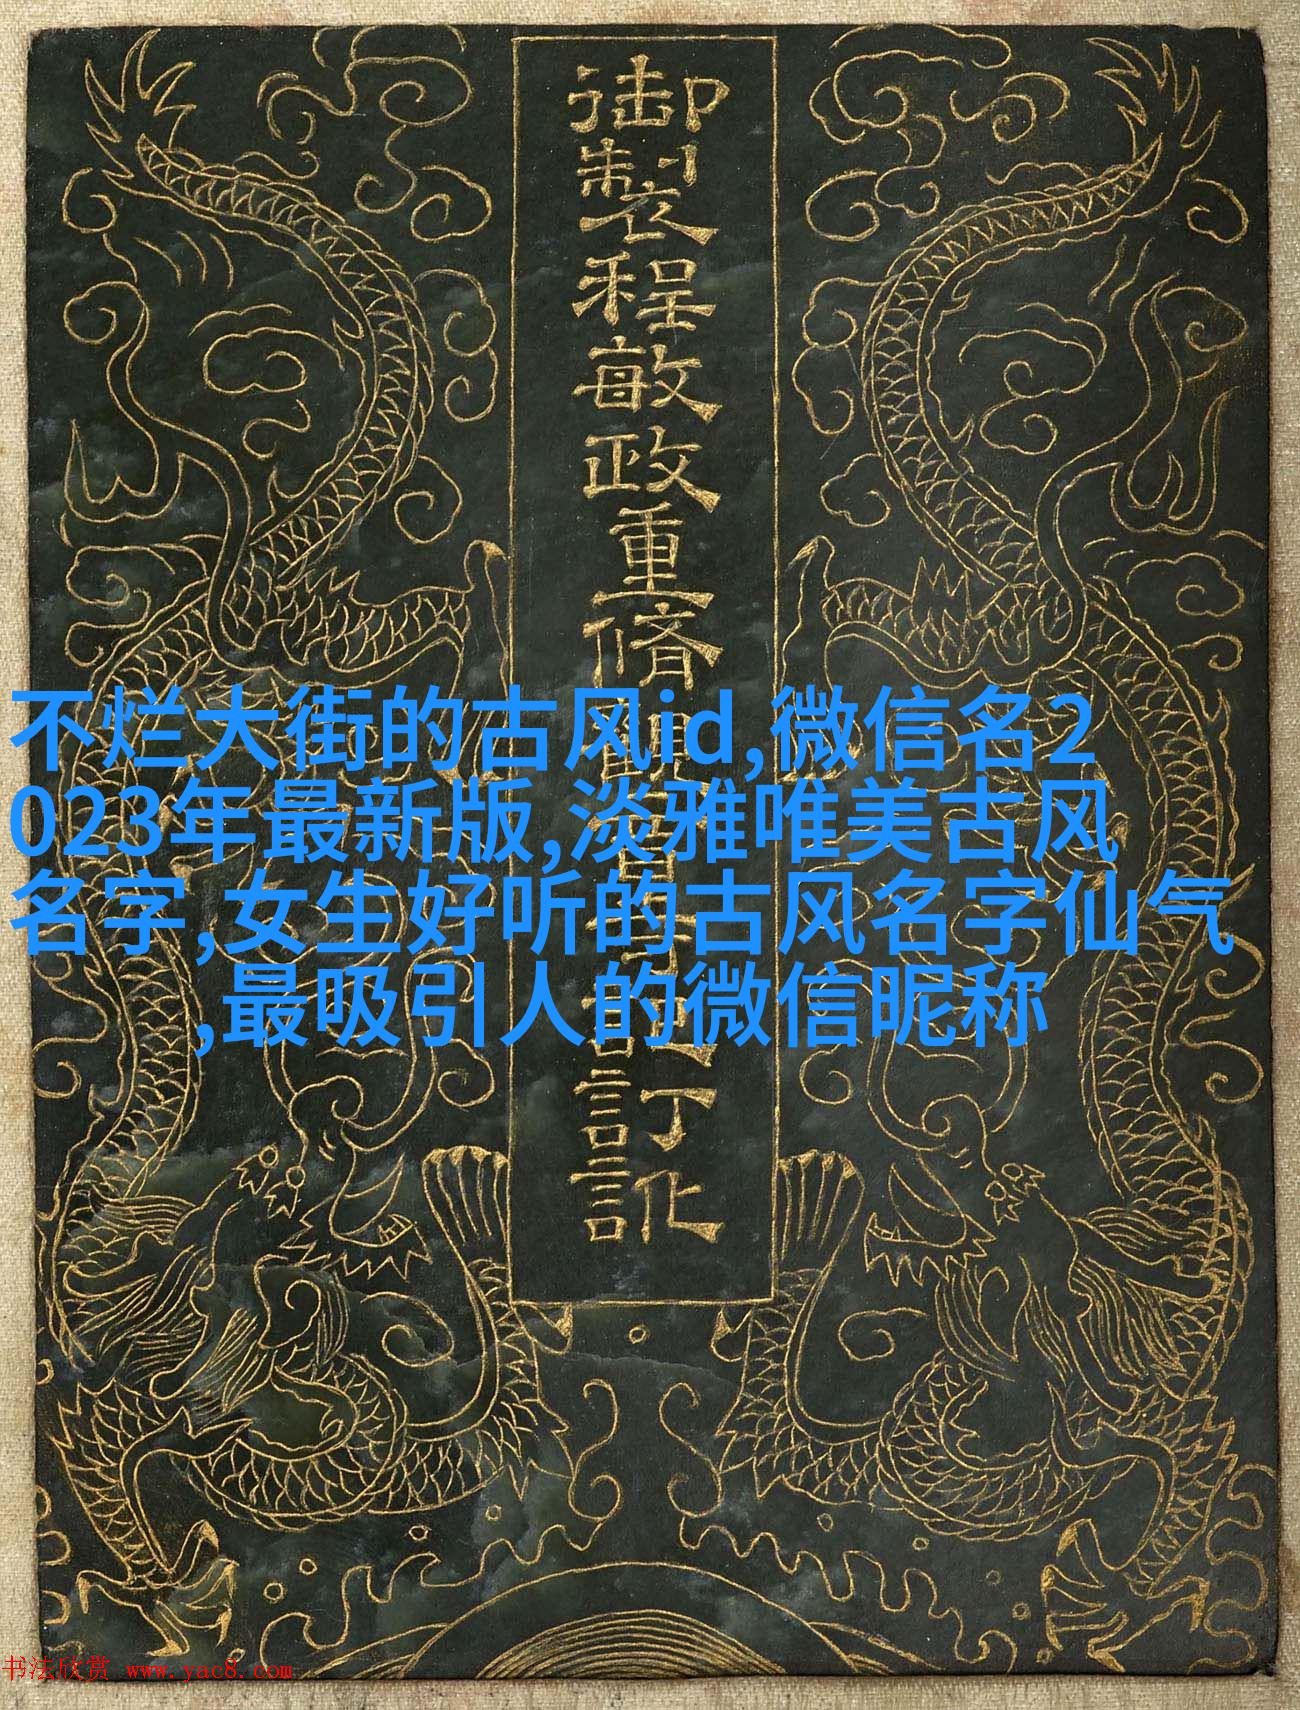 御製程敏政重脩訂訛
不烂大街的古风id,微信名2
023年最新版,淡雅唯美古风
名字,女生好听的古风名字仙气
,最吸引人的微信昵称
书法欣赏 www.yac8.com